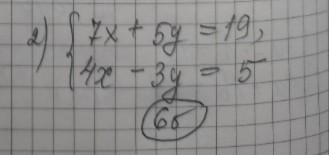 2) { 7x + 5y = 19,
4x - 3y = 5
6б